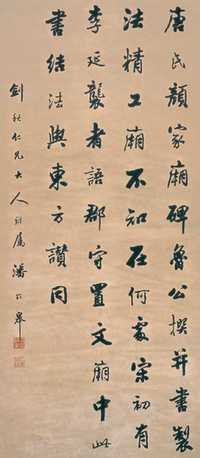 唐氏顏家廟碑魯公撰并書製
法精工廟不知在何處宋初有
李延襲者語郡守置文廟中此
書結法與東方讚同
劍秋仁兄大人雅屬 潘齡皋